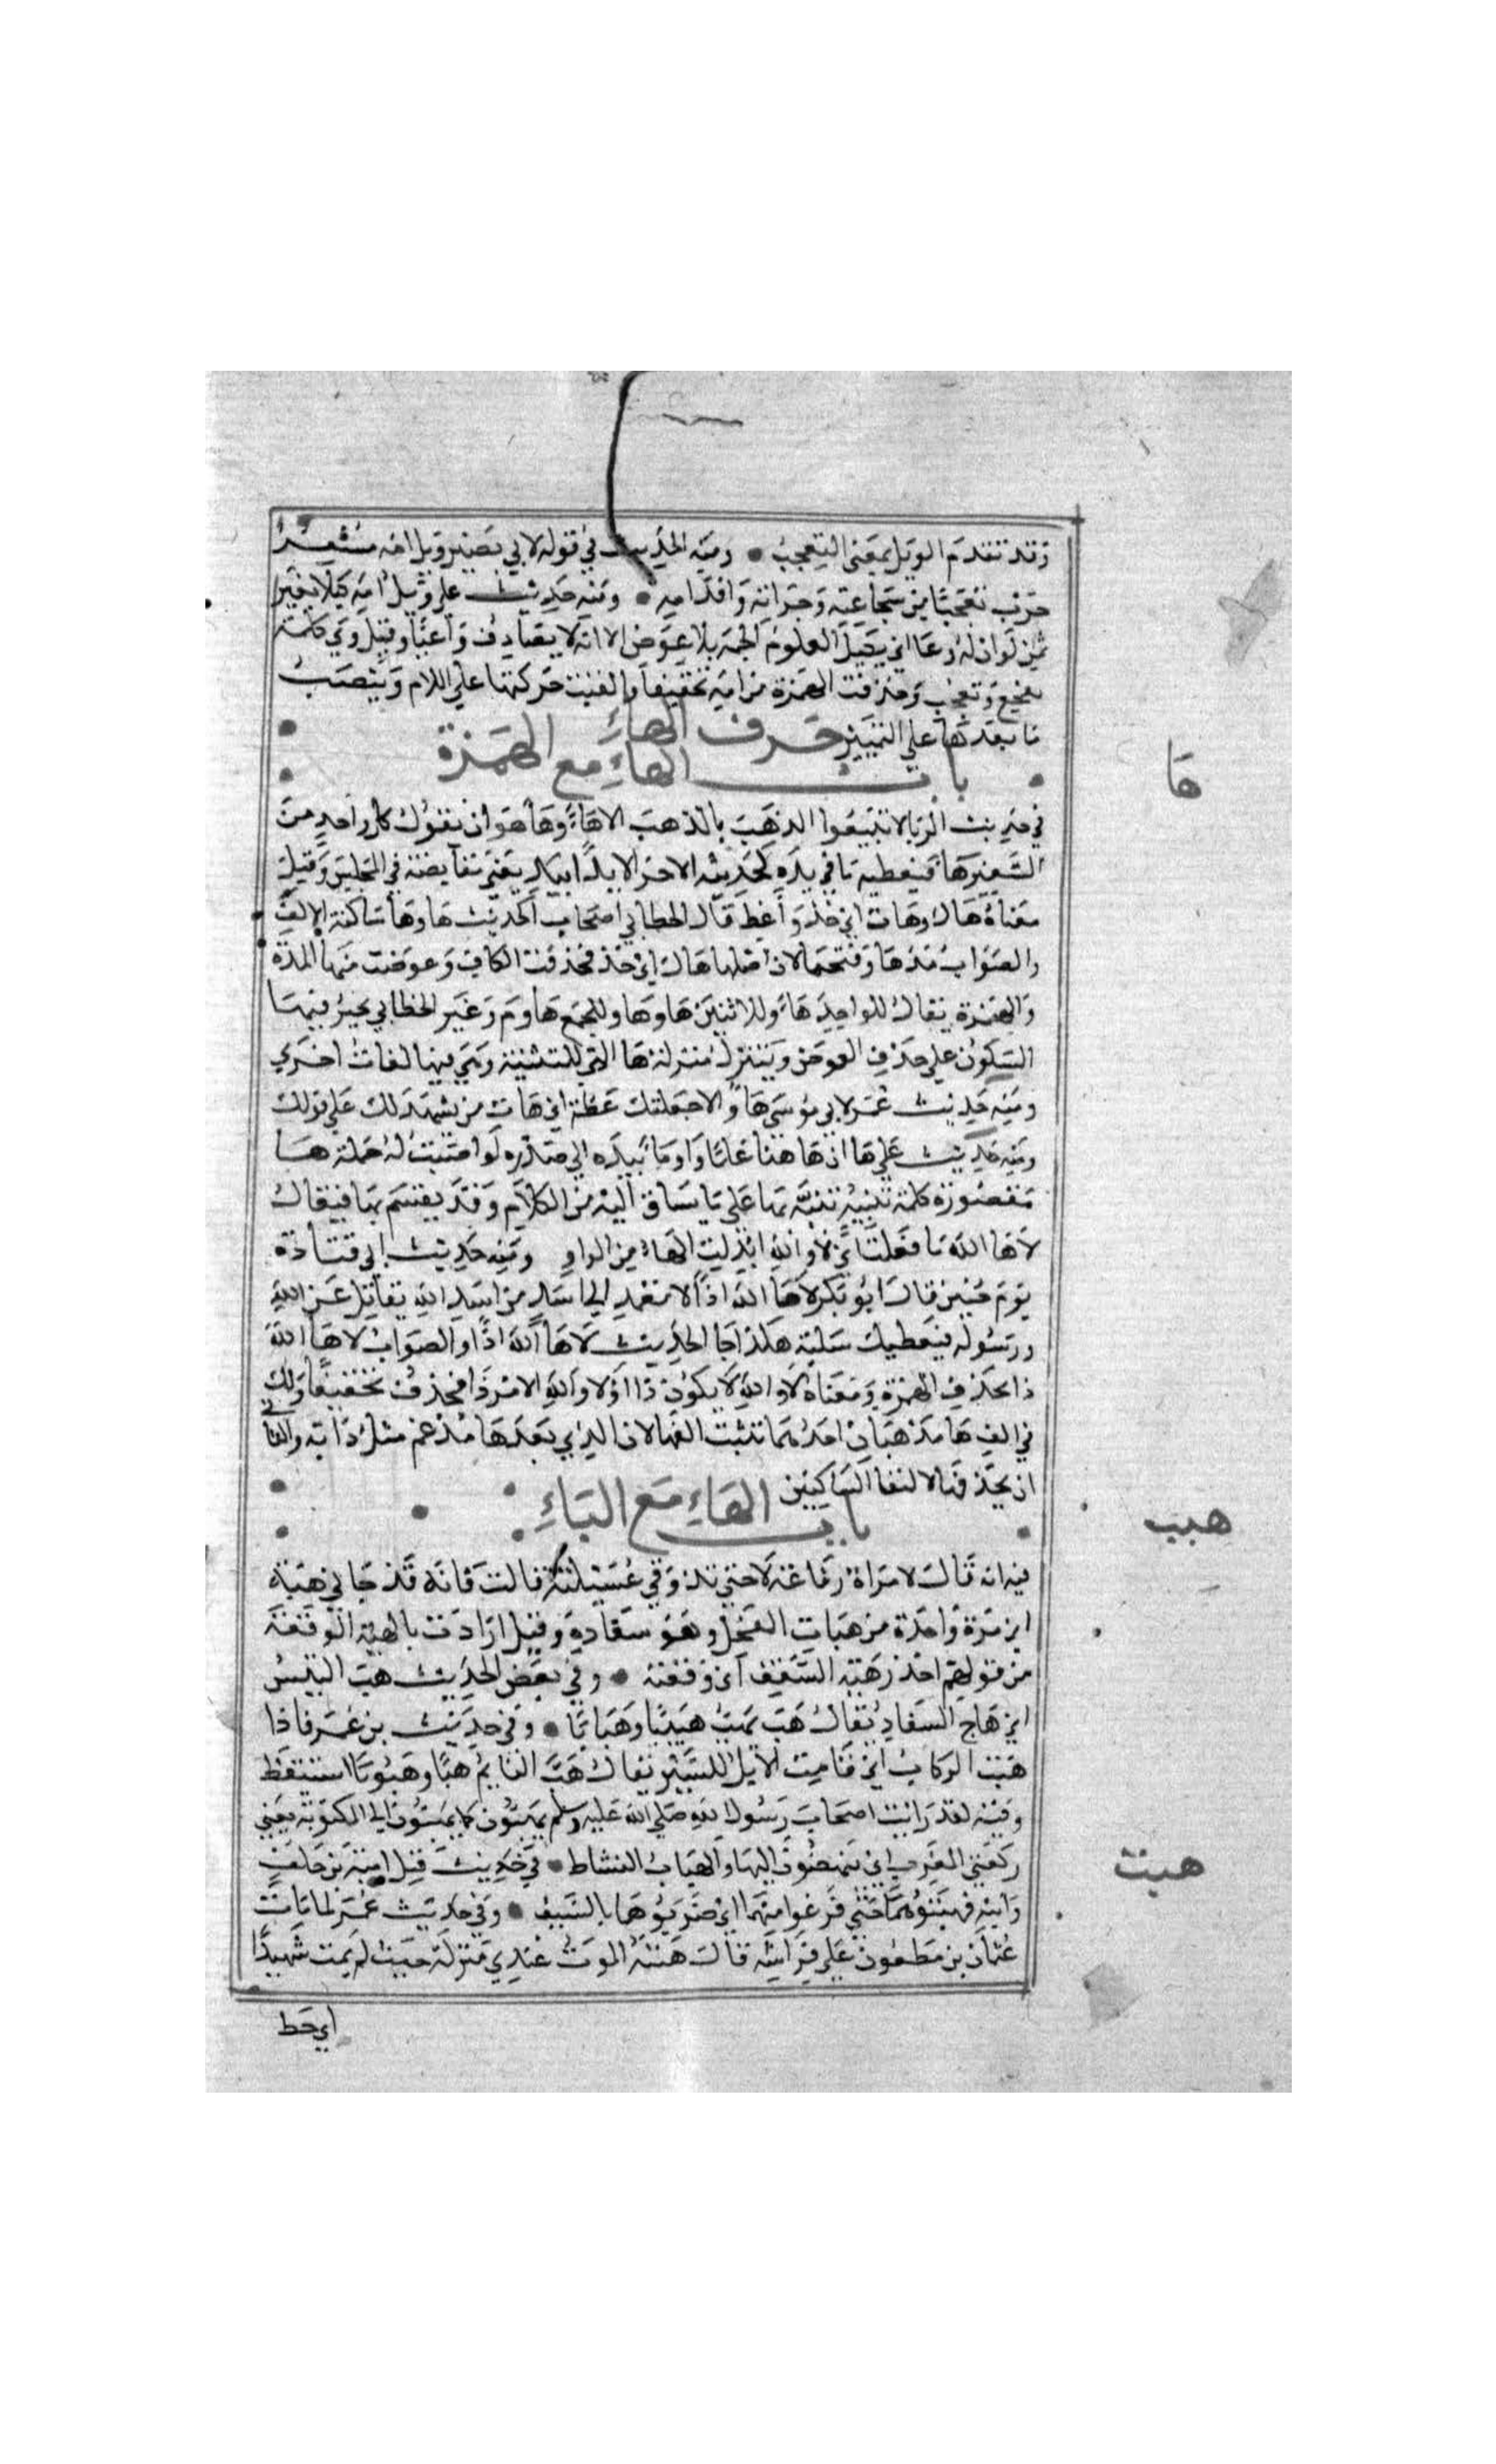 وقد تقدم الويل بمعنى التعجب ومنه الحديث في قوله لابي بصير ويل امه مسعر
حرب تعجبا من شجاعته وجراته واقدامه ومنه حديث علي ويل امه كيلا بغير
ثمن لو ان له وعا اي يكيل العلوم الجمة بلا عوض الا انه لا يصادف واعيا وقيل وي كلمة
تفجع وتعجب وحذفت الهمزة من امه تخفيفا والقيت حركتها علي اللام وينتصب
ما بعدها علي التمييز حرف الهاء
باب الهاء مع الهمزة
ها
في حديث الربا لا تبيعوا الذهب بالذهب الا هاء وهاء هو ان يقول كل واحد من
البيعين ها فيعطيه ما في يده كحديثه الاخر الا يدا بيد يعني تقابضته في المجلس وقيل
معناه هاك وهات اي خذ واعط قال الخطابي اصحاب الحديث ها وها ساكنة الالف
والصواب مدها وفتحها لان اصلها هاك اي خذ فحذفت الكاف وعوضت منها المدة
والهمزة يقال للواحد هاء وللاثنين هاوما وللجمع هاوم وغير الخطابي يجيز فيها
السكون علي حذف العوض ويتنزل منزلة ها التي للتنبيه وهي فيها لغات اخري
ومنه حديث عمر لابي موسي ها والا جعلتك عظة اي هات من يشهد لك علي قولك
ومنه حديث علي ها ان هاهنا علما واوما بيده الي صدره لو اصبت له حملة ها
مقصورة كلمة تنبيه تنبه بها علي ما يساق اليه من الكلام وقد يقسم بها فيقال
لاها الله ما فعلت اي لا والله ابدلت الهاء من الواو ومنه حديث ابي قتادة
يوم حنين قال ابو بكر لاها الله اذا لا نعمد الي اسد من اسد الله يقاتل عن الله
ورسوله فيعطيك سلبه هكذا جا الحديث لاها الله اذا والصواب لاها الله
ذا بحذف الهمزة ومعناه لا والله لا يكون ذا او لا والله الامر ذا فحذف تخفيفا ولك
في الف ها مذهبان احدهما تثبت الفها لان الذي بعدها مدغم مثل دابة والثاني
ان يحذفها لالتقا الساكنين
باب الهاء مع الباء
هبب
فيه انه قال لامراة رفاعة لا حتي تذوقي عسيلته قالت فانه قد جاني هبة
اي مرة واحدة من هبات الفحل وهو سفاده وقيل ارادت بالهبة الوقعة
من قولهم احذر هبة السيف اي وقعته وفي بعض الحديث هب التيس
اي هاج للسفاد يقال هب يهب هبيبا وهبابا وفي حديث بن عمر فاذا
هبت الركاب اي قامت الابل للسير يقال هب النايم هبا وهبوبا استيقظ
وفيه لقد رايت اصحاب رسول الله صلي الله عليه وسلم يهبون كما يهبون الي المكتوبة يعني
ركعتي المغرب اي ينهضون اليها والهباب النشاط في حديث قتل امية بن خلف
هبت
وابنه فهبتوهما حتي فرغوا منهما اي ضربوهما بالسيف وفي حديث عمر لما مات
عثمان بن مظعون علي فراشه قال هبته الموت عندي منزلة حيث لم يمت شهيدا
اي حط